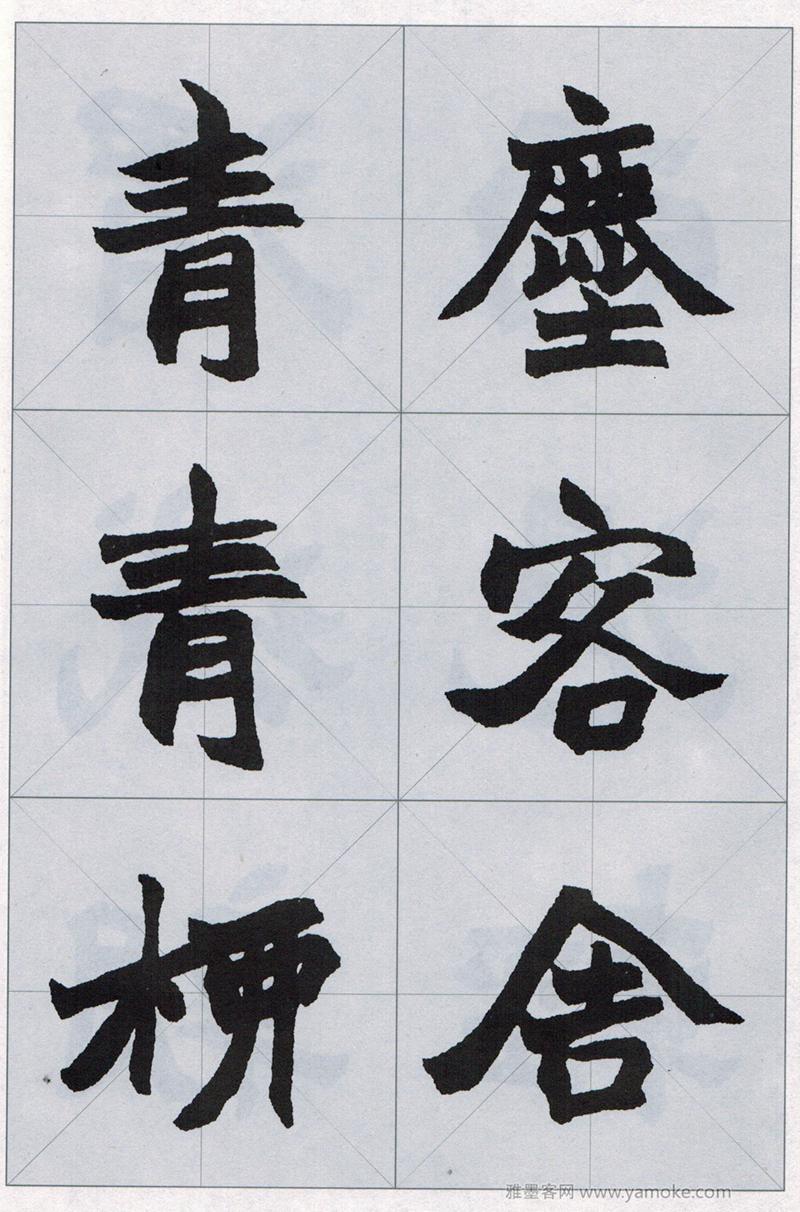 塵客舍
青青桺
雅墨客网 www.yamoke.com